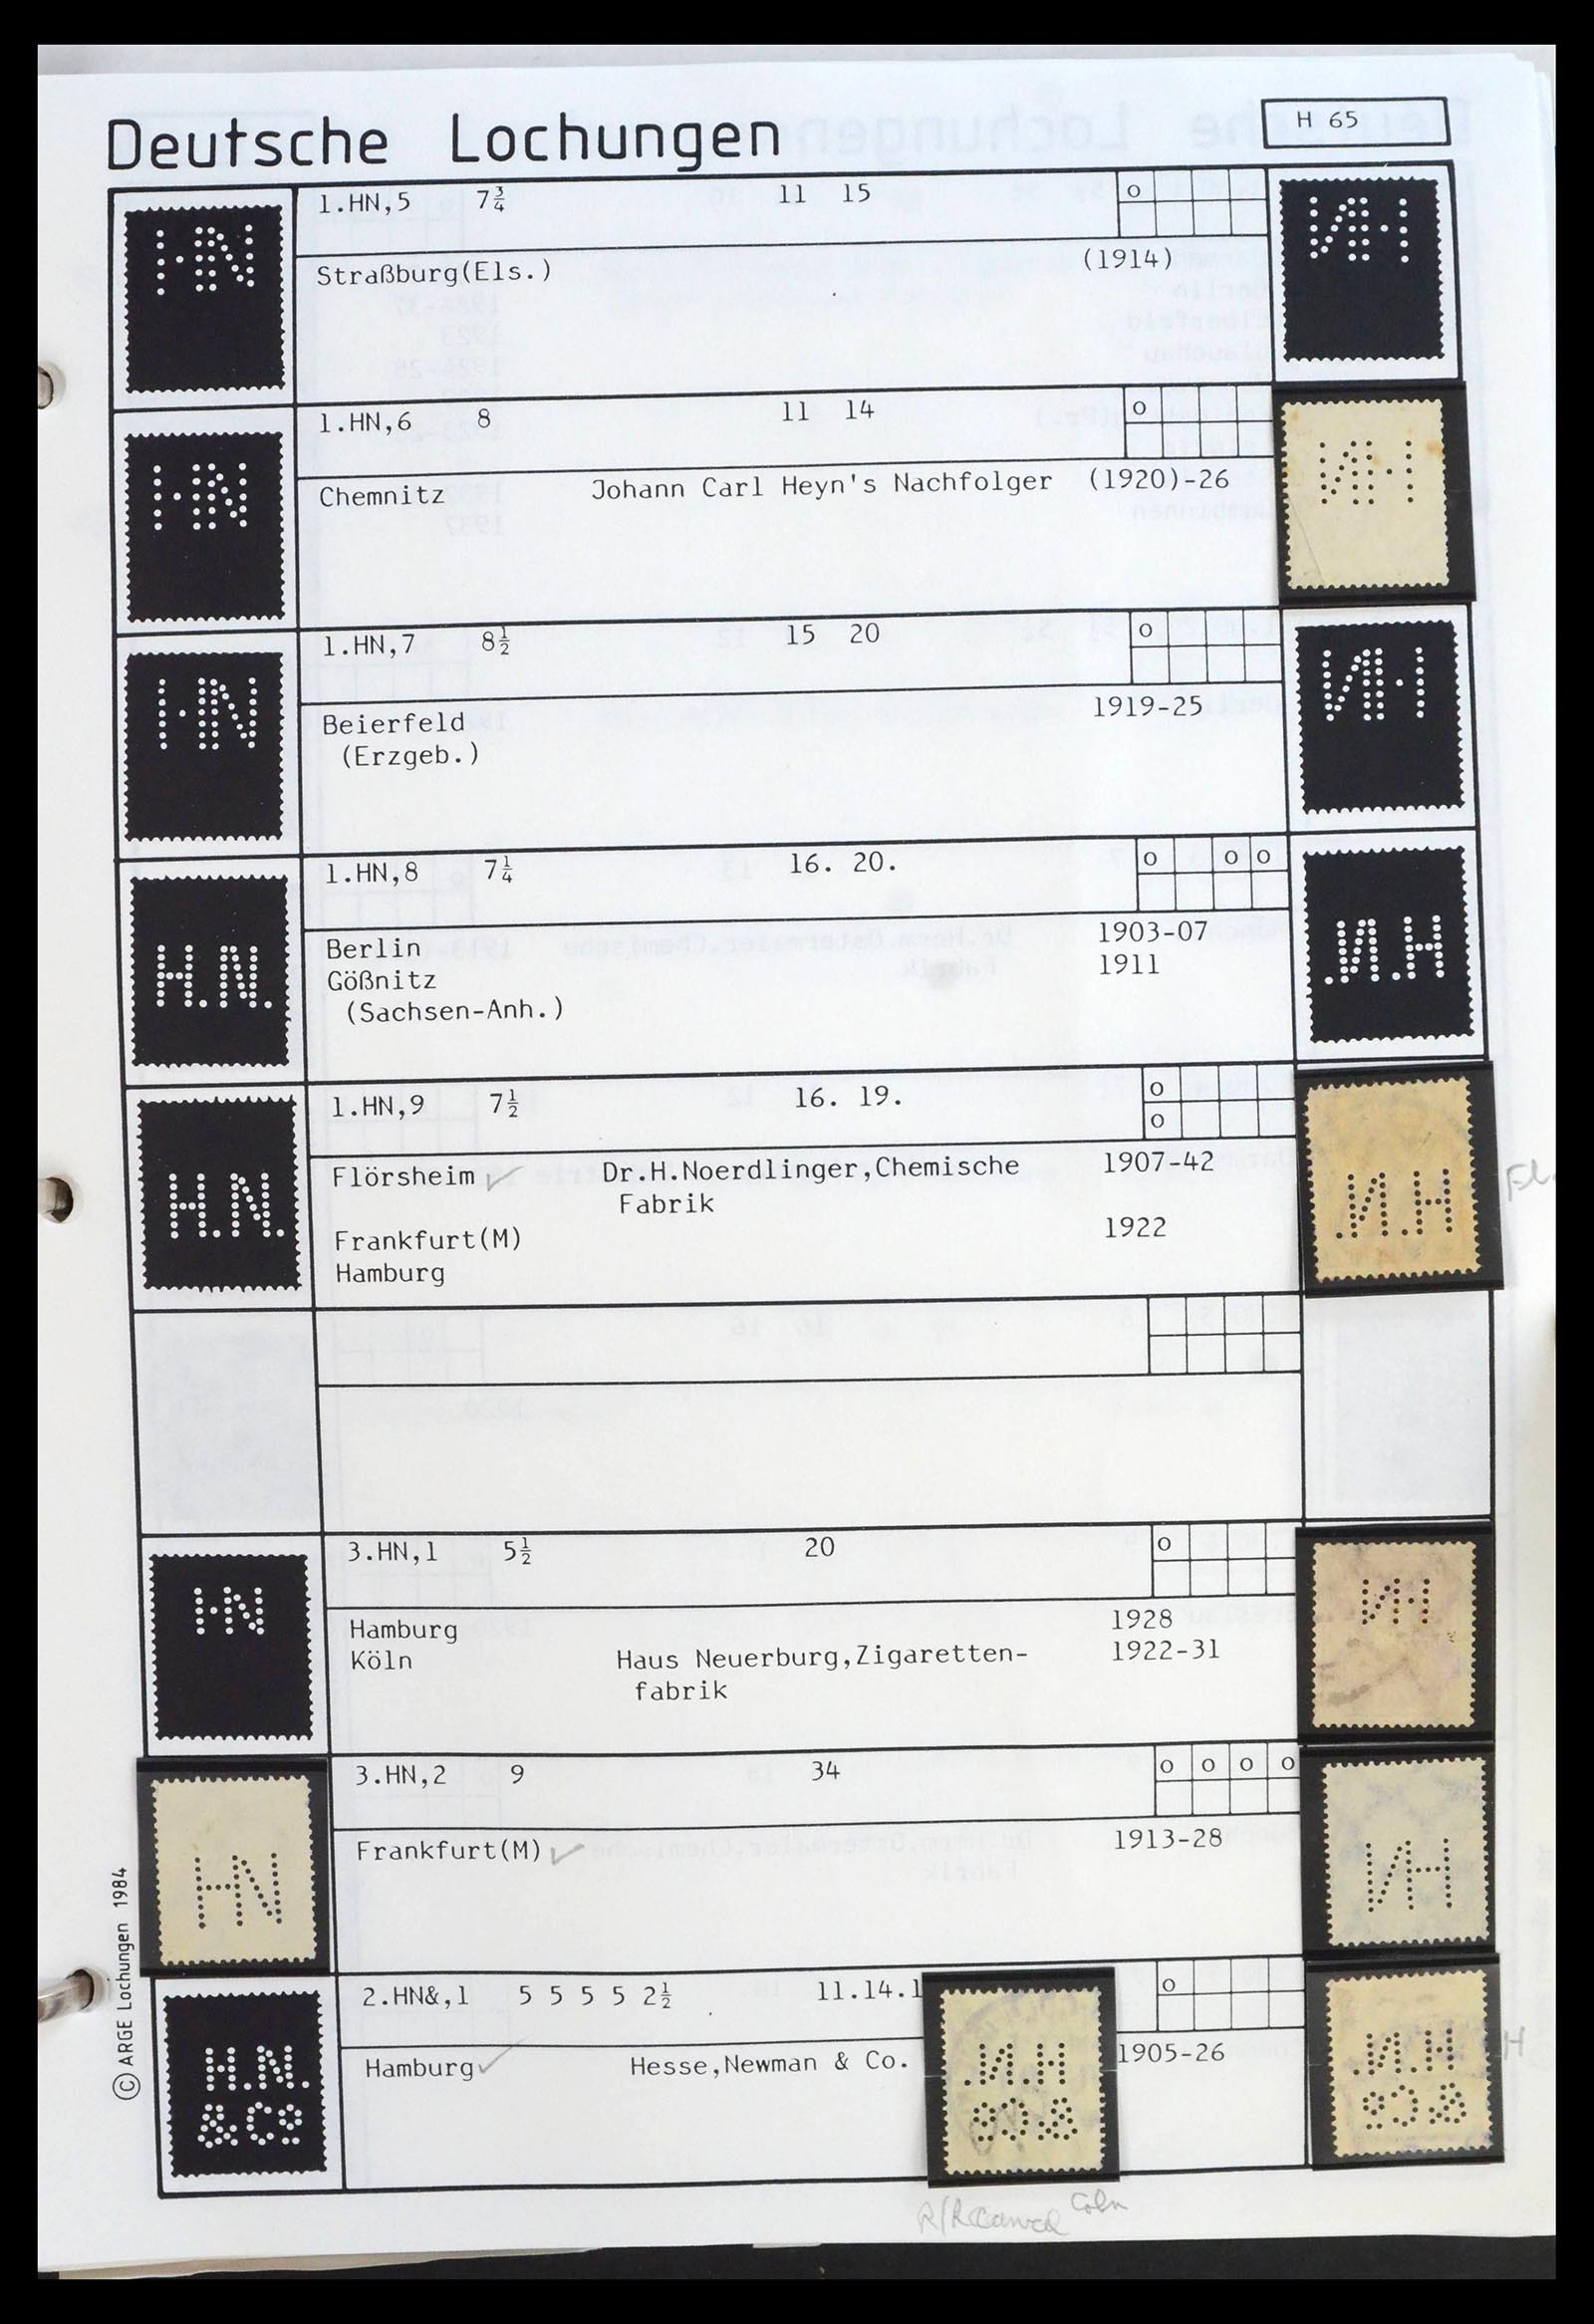 Deutsche Lochungen
H 65
HN
1.HN,5 7¾ 11 15 o
Straßburg(Els.) (1914)
HN
1.HN,6 8 11 14 o
Chemnitz Johann Carl Heyn's Nachfolger (1920)-26
HN
1.HN,7 8½ 15 20 o
Beierfeld 1919-25
(Erzgeb.)
H.N.
1.HN,8 7¼ 16. 20. o o o
Berlin 1903-07
Gößnitz 1911
(Sachsen-Anh.)
H.N.
1.HN,9 7½ 16. 19. o
o
Flörsheim Dr.H.Noerdlinger,Chemische 1907-42
Fabrik
Frankfurt(M) 1922
Hamburg
HN
3.HN,1 5½ 20 o
Hamburg 1928
Köln Haus Neuerburg,Zigaretten- 1922-31
fabrik
HN
3.HN,2 9 34 o o o o
Frankfurt(M) 1913-28
H.N.
&Co
2.HN&,1 5 5 5 5 2½ 11.14.1 o
Hamburg Hesse,Newman & Co. 1905-26
H.N.
&Co
H
Cöln
© ARGE Lochungen 1984